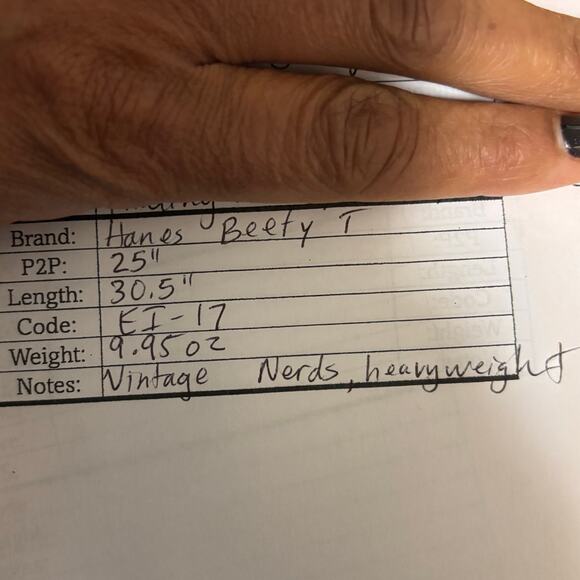 Brand: Hanes Beefy T
P2P: 25"
Length: 30.5"
Code: EI-17
Weight: 9.95 oz
Notes: Vintage Nerds, heavyweight